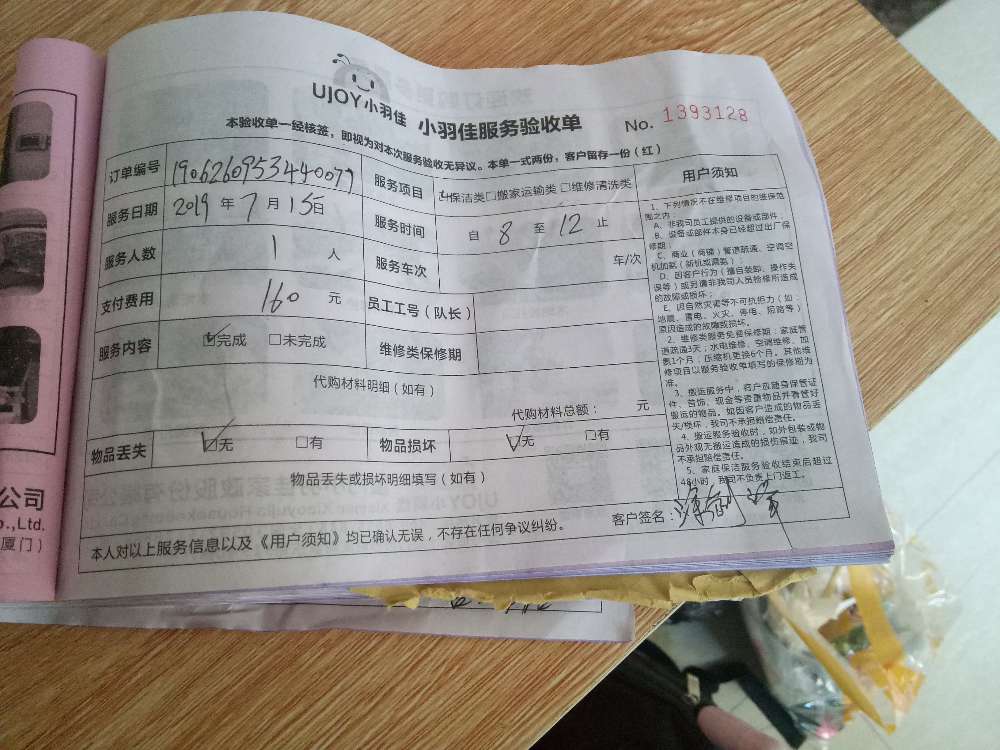 UJOY小羽佳 小羽佳服务验收单 No. 1393128
本验收单一经核签，即视为对本次服务验收无异议。本单一式两份，客户留存一份（红）
订单编号 1906260953440077 服务项目 ☑保洁类□搬家运输类□维修清洗类
服务日期 2019 年 7 月 15日 服务时间 自 8 至 12 止
服务人数 1 人 服务车次 车/次
支付费用 160 元 员工工号（队长）
服务内容 ☑完成 □未完成 维修类保修期
代购材料明细（如有）
代购材料总额： 元
物品丢失 ☑无 □有 物品损坏 ☑无 □有
物品丢失或损坏明细填写（如有）
本人对以上服务信息以及《用户须知》均已确认无误，不存在任何争议纠纷。 客户签名：
用户须知
1、下列情况不在维修项目的维保范
围之内
A、非我司员工提供的设备或部件；
B、设备或部件本身已经超过出厂保
修期；
C、商业（商铺）管道疏通、空调空
机加氨（新机或漏氨）
D、因客户行为（擅自装卸、操作失
误等）或另请非我司人员检修所造成
的故障或损坏；
E、因自然灾害等不可抗拒力（如：
地震、雷电、火灾、停电、陷路等）
原因造成的故障或损坏。
2、维修类服务免费保修期：家庭管
道疏通3天；水电维修、空调维修、加
氨1个月；压缩机更换6个月。其他维
修项目以服务验收单填写的保修期为
准。
3、搬运服务中，客户应随身保管证
件、首饰、现金等贵重物品并看管好
搬运的物品。如因客户造成的物品丢
失/损坏，我司不承担赔偿责任。
4、搬运服务验收时，如外包装或物
品外观无搬运造成的损伤痕迹，我司
不承担赔偿责任。
5、家庭保洁服务验收结束后超过
48小时，我司不负责上门返工。
公司
o.,Ltd.
厦门）